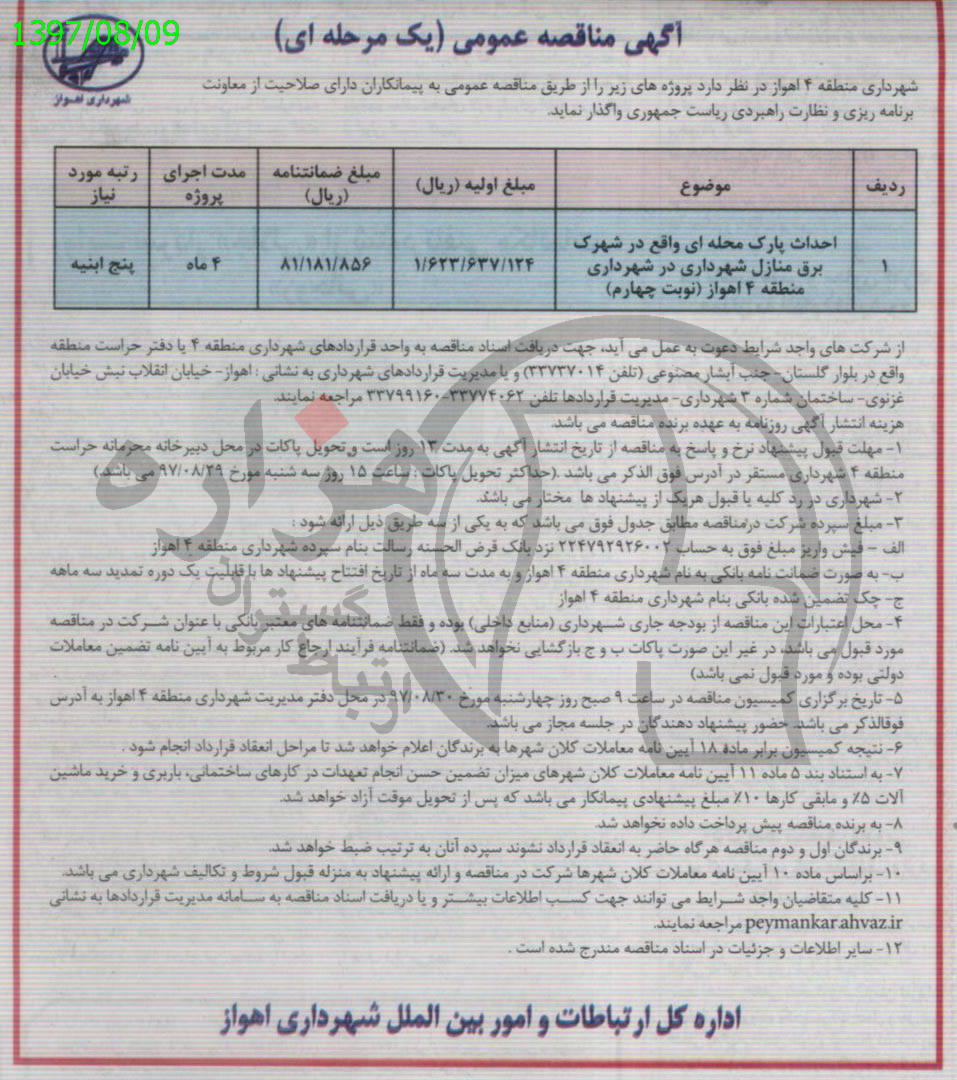 1397/08/09
آگهی مناقصه عمومی (یک مرحله ای)
شهرداری اهواز
شهرداری منطقه ۴ اهواز در نظر دارد پروژه های زیر را از طریق مناقصه عمومی به پیمانکاران دارای صلاحیت از معاونت
برنامه ریزی و نظارت راهبردی ریاست جمهوری واگذار نماید.
ردیف موضوع مبلغ اولیه (ریال) مبلغ ضمانتنامه (ریال) مدت اجرای پروژه رتبه مورد نیاز
۱ احداث پارک محله ای واقع در شهرک برق منازل شهرداری در شهرداری منطقه ۴ اهواز (نوبت چهارم) ۱/۶۲۳/۶۳۷/۱۲۴ ۸۱/۱۸۱/۸۵۶ ۴ ماه پنج ابنیه
از شرکت های واجد شرایط دعوت به عمل می آید، جهت دریافت اسناد مناقصه به واحد قراردادهای شهرداری منطقه ۴ یا دفتر حراست منطقه
واقع در بلوار گلستان- جنب آبشار مصنوعی (تلفن ۳۳۷۳۷۰۱۴) و یا مدیریت قراردادهای شهرداری به نشانی : اهواز- خیابان انقلاب نبش خیابان
غزنوی- ساختمان شماره ۳ شهرداری- مدیریت قراردادها تلفن ۳۳۷۷۴۰۶۲-۳۳۷۹۹۱۶۰ مراجعه نمایند.
هزینه انتشار آگهی روزنامه به عهده برنده مناقصه می باشد.
۱- مهلت قبول پیشنهاد نرخ و پاسخ به مناقصه از تاریخ انتشار آگهی به مدت ۱۳ روز است و تحویل پاکات در محل دبیرخانه محرمانه حراست
منطقه ۴ شهرداری مستقر در آدرس فوق الذکر می باشد .(حداکثر تحویل پاکات : ساعت ۱۵ روز سه شنبه مورخ ۹۷/۰۸/۲۹ می باشد.)
۲- شهرداری در رد کلیه یا قبول هریک از پیشنهاد ها مختار می باشد.
۳- مبلغ سپرده شرکت درمناقصه مطابق جدول فوق می باشد که به یکی از سه طریق ذیل ارائه شود :
الف - فیش واریز مبلغ فوق به حساب ۲۲۴۷۹۲۹۲۶۰۰۲ نزد بانک قرض الحسنه رسالت بنام سپرده شهرداری منطقه ۴ اهواز
ب- به صورت ضمانت نامه بانکی به نام شهرداری منطقه ۴ اهواز و به مدت سه ماه از تاریخ افتتاح پیشنهاد ها با قابلیت یک دوره تمدید سه ماهه
ج- چک تضمین شده بانکی بنام شهرداری منطقه ۴ اهواز
۴- محل اعتبارات این مناقصه از بودجه جاری شهرداری (منابع داخلی) بوده و فقط ضمانتنامه های معتبر بانکی با عنوان شرکت در مناقصه
مورد قبول می باشد، در غیر این صورت پاکات ب و ج بازگشایی نخواهد شد. (ضمانتنامه فرآیند ارجاع کار مربوط به آیین نامه تضمین معاملات
دولتی بوده و مورد قبول نمی باشد)
۵- تاریخ برگزاری کمیسیون مناقصه در ساعت ۹ صبح روز چهارشنبه مورخ ۹۷/۰۸/۳۰ در محل دفتر مدیریت شهرداری منطقه ۴ اهواز به آدرس
فوقالذکر می باشد. حضور پیشنهاد دهندگان در جلسه مجاز می باشد.
۶- نتیجه کمیسیون برابر ماده ۱۸ آیین نامه معاملات کلان شهرها به برندگان اعلام خواهد شد تا مراحل انعقاد قرارداد انجام شود .
۷- به استناد بند ۵ ماده ۱۱ آیین نامه معاملات کلان شهرهای میزان تضمین حسن انجام تعهدات در کارهای ساختمانی، باربری و خرید ماشین
آلات ۵٪ و مابقی کارها ۱۰٪ مبلغ پیشنهادی پیمانکار می باشد که پس از تحویل موقت آزاد خواهد شد.
۸- به برنده مناقصه پیش پرداخت داده نخواهد شد.
۹- برندگان اول و دوم مناقصه هرگاه حاضر به انعقاد قرارداد نشوند سپرده آنان به ترتیب ضبط خواهد شد.
۱۰- براساس ماده ۱۰ آیین نامه معاملات کلان شهرها شرکت در مناقصه و ارائه پیشنهاد به منزله قبول شروط و تکالیف شهرداری می باشد.
۱۱- کلیه متقاضیان واجد شرایط می توانند جهت کسب اطلاعات بیشتر و یا دریافت اسناد مناقصه به سامانه مدیریت قراردادها به نشانی
peymankar.ahvaz.ir مراجعه نمایند.
۱۲- سایر اطلاعات و جزئیات در اسناد مناقصه مندرج شده است .
اداره کل ارتباطات و امور بین الملل شهرداری اهواز
هزاره
گستران
ارتباط